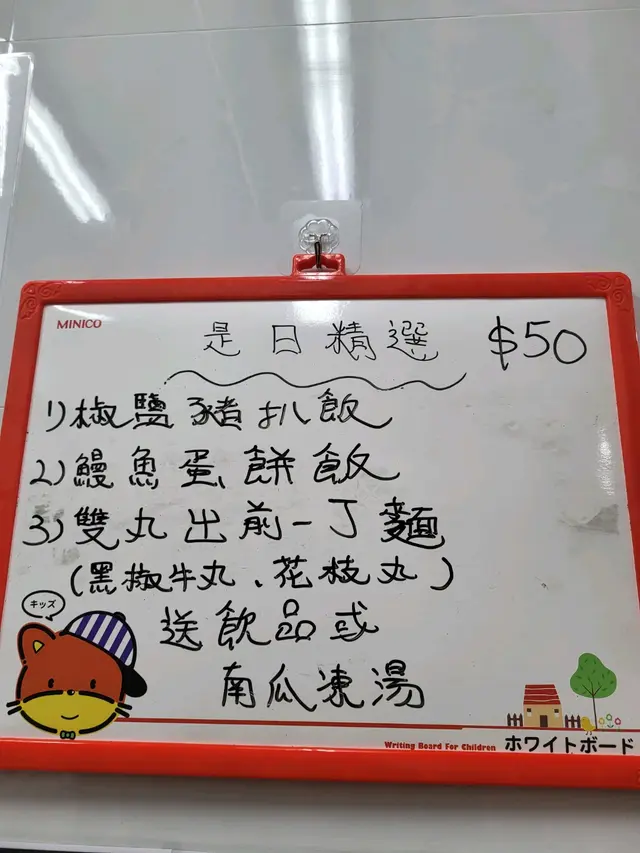 MINICO
是日精選 $50
1) 椒鹽豬扒飯
2) 鰻魚蛋餅飯
3) 雙丸出前一丁麵
(黑椒牛丸、花枝丸)
送飲品或
南瓜凍湯
キッズ
Writing Board For Children ホワイトボード